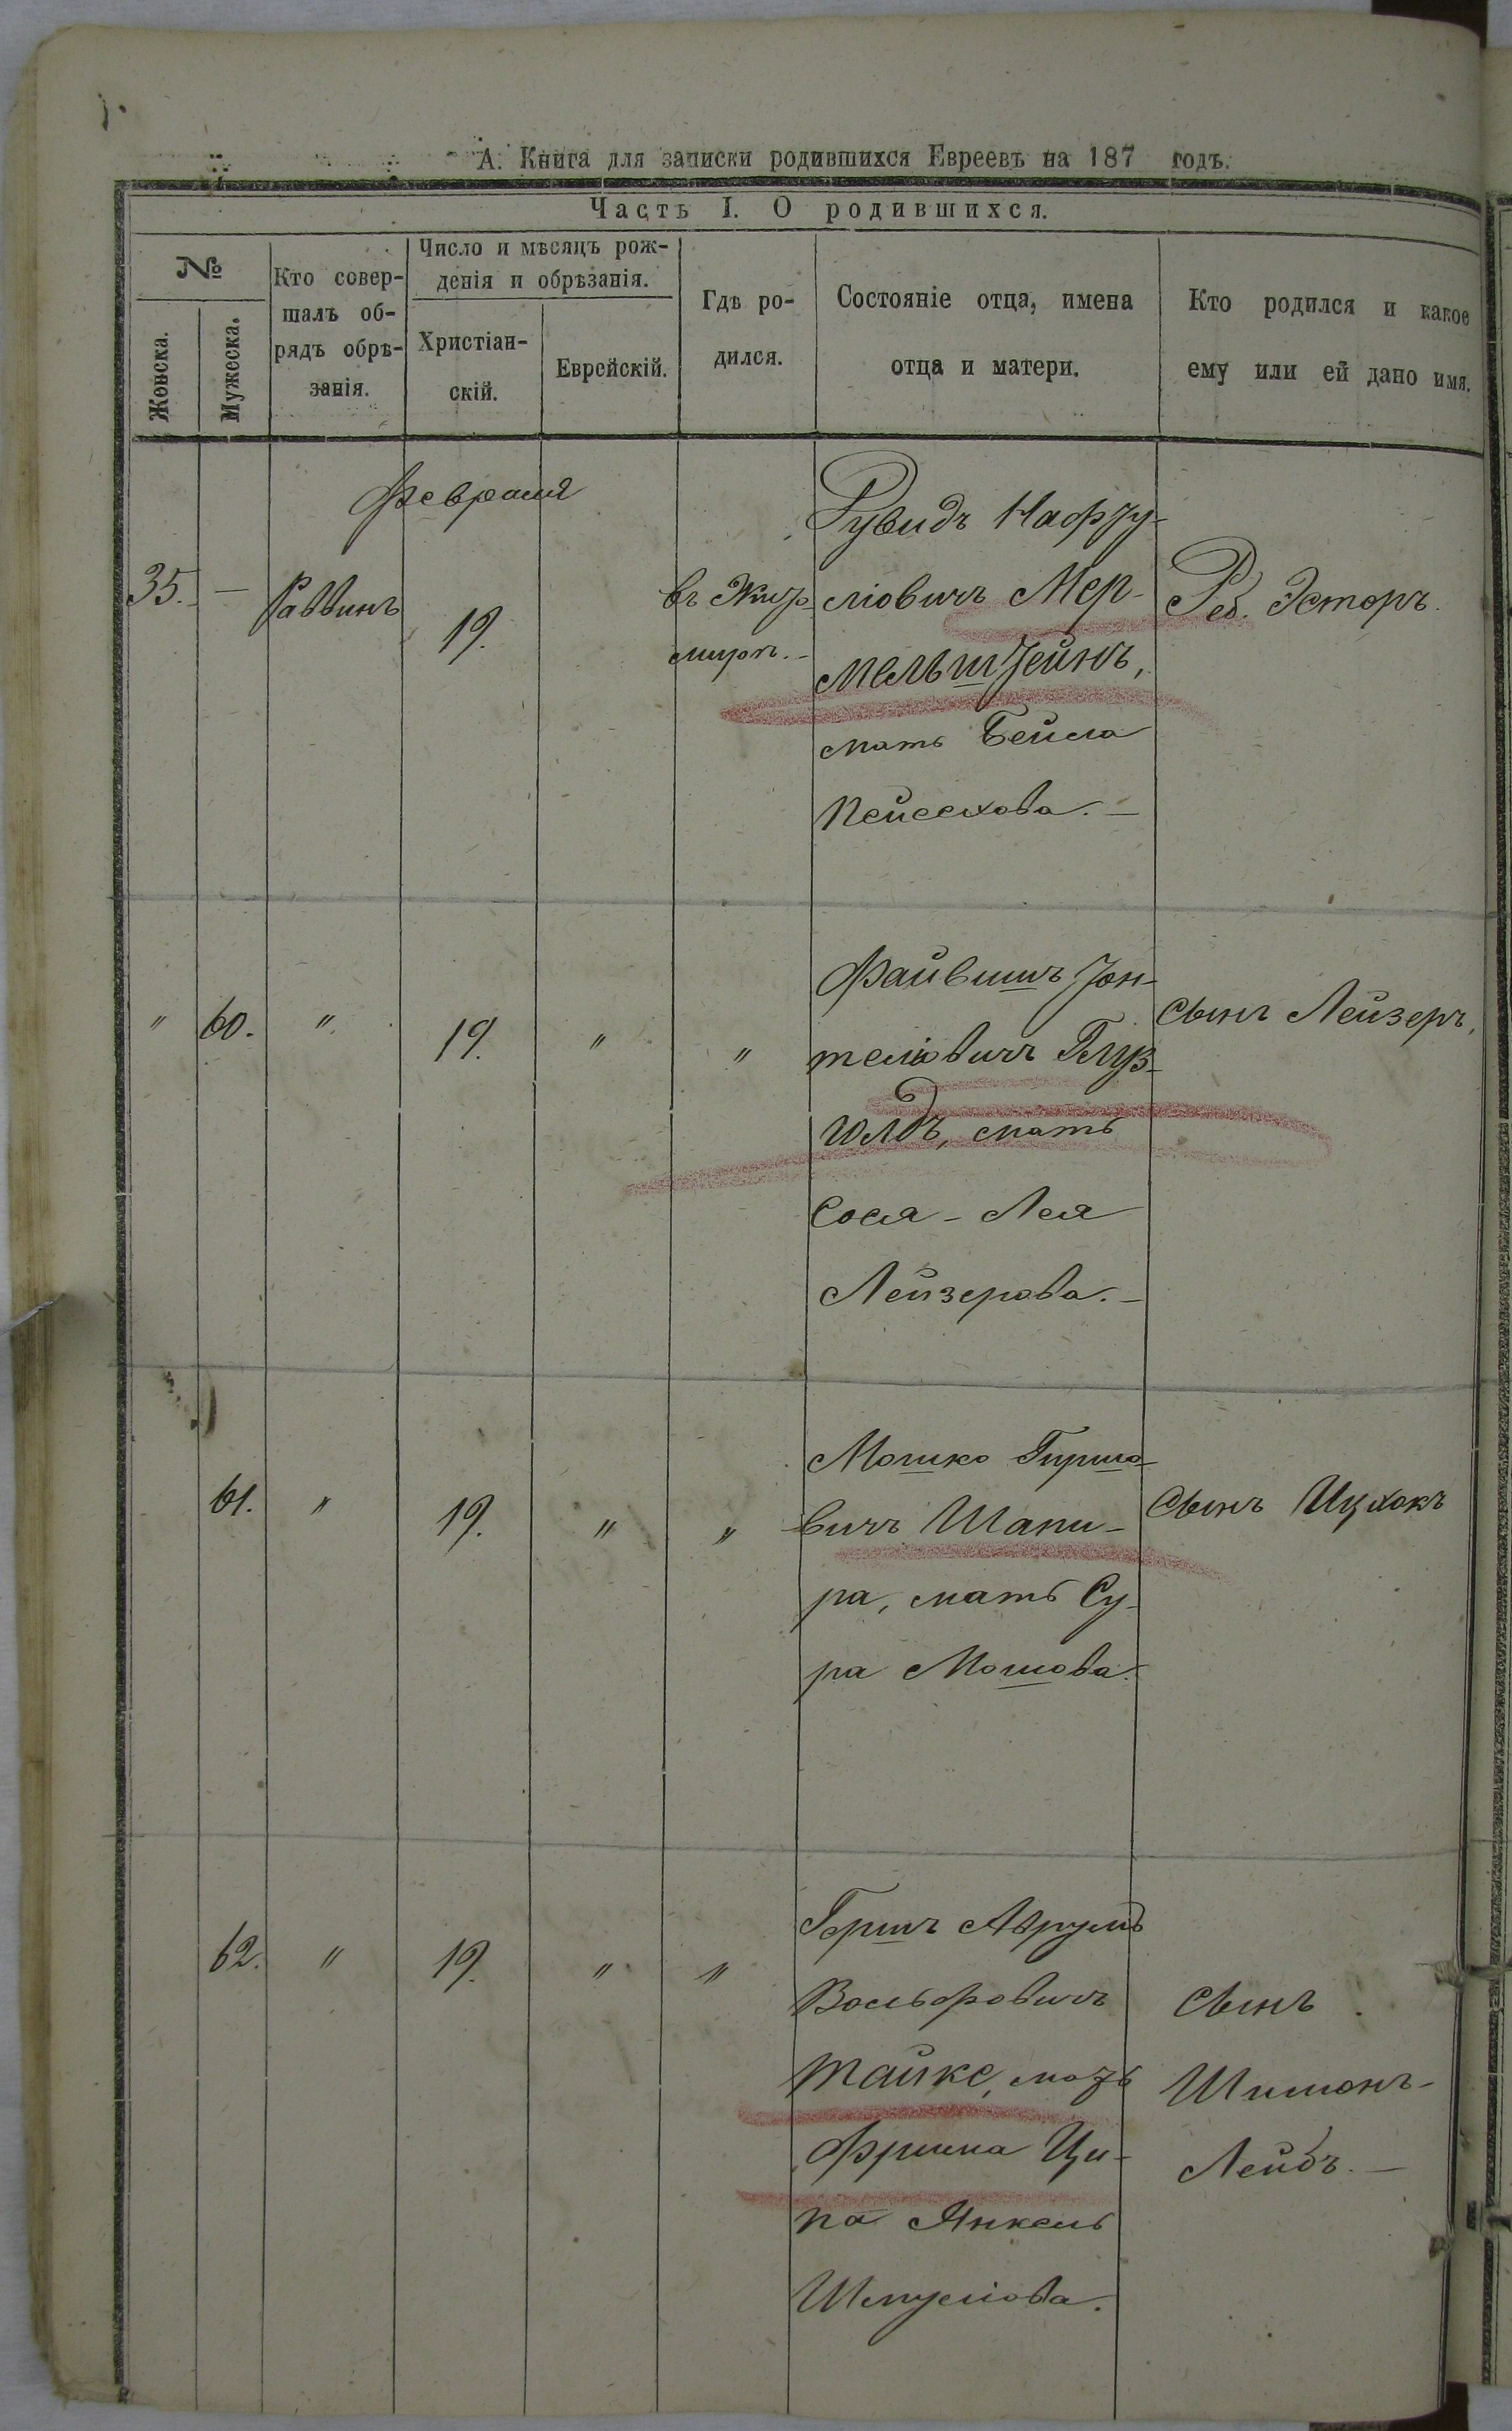 А. Книга для записки родившихся Евреевъ на 187 годъ.
Часть I. О родившихся.
№
Женска.
Мужеска.
Кто совер-
шалъ об-
рядъ обрѣ-
занія.
Число и мѣсяцъ рож-
денія и обрѣзанія.
Христіан-
скій.
Еврейскій.
Гдѣ ро-
дился.
Состояніе отца, имена
отца и матери.
Кто родился и какое
ему или ей дано имя.
Февраля
35. —
Раввинъ
19.
въ Жито
мирѣ.
Рувидъ Нафту-
ліовичъ Мер-
мельштейнъ,
мать Бейла
Пейсехова. —
Реб. Эстеръ.
" 60. " 19. " "
Файвишъ Іон-
теліовичъ Глуз-
юлдъ, мать
Сося - Лея
Лейзерова. —
Сынъ Лейзеръ,
61. " 19. " "
Мошко Гиршо-
вичъ Шапи-
ра, мать Су-
ра Мошова.
Сынъ Ицхокъ
62. " 19. " "
Гершъ Аврумъ
Вольфовичъ
Тайке, мать
Фрима Ци-
па Янкель
Шмуліова.
Сынъ
Шимонъ-
Лейбъ. —